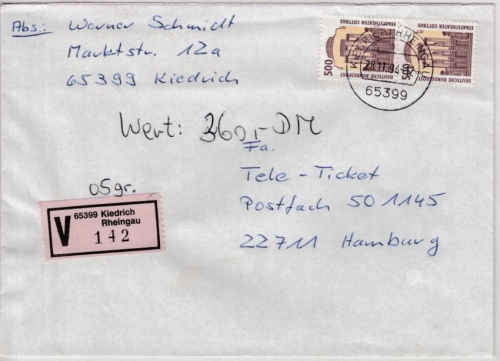 Abs.: Werner Schmidt
Marktstr. 12a
65399 Kiedrich
500
STAATSTHEATER COTTBUS
DEUTSCHE BUNDESPOST
500
STAATSTHEATER COTTBUS
DEUTSCHE BUNDESPOST
RHEINGAU
28.11.94
65399
Wert: 360,- DM
Fa.
Tele-Ticket
Postfach 501145
22711 Hamburg
V
65399 Kiedrich
Rheingau
142